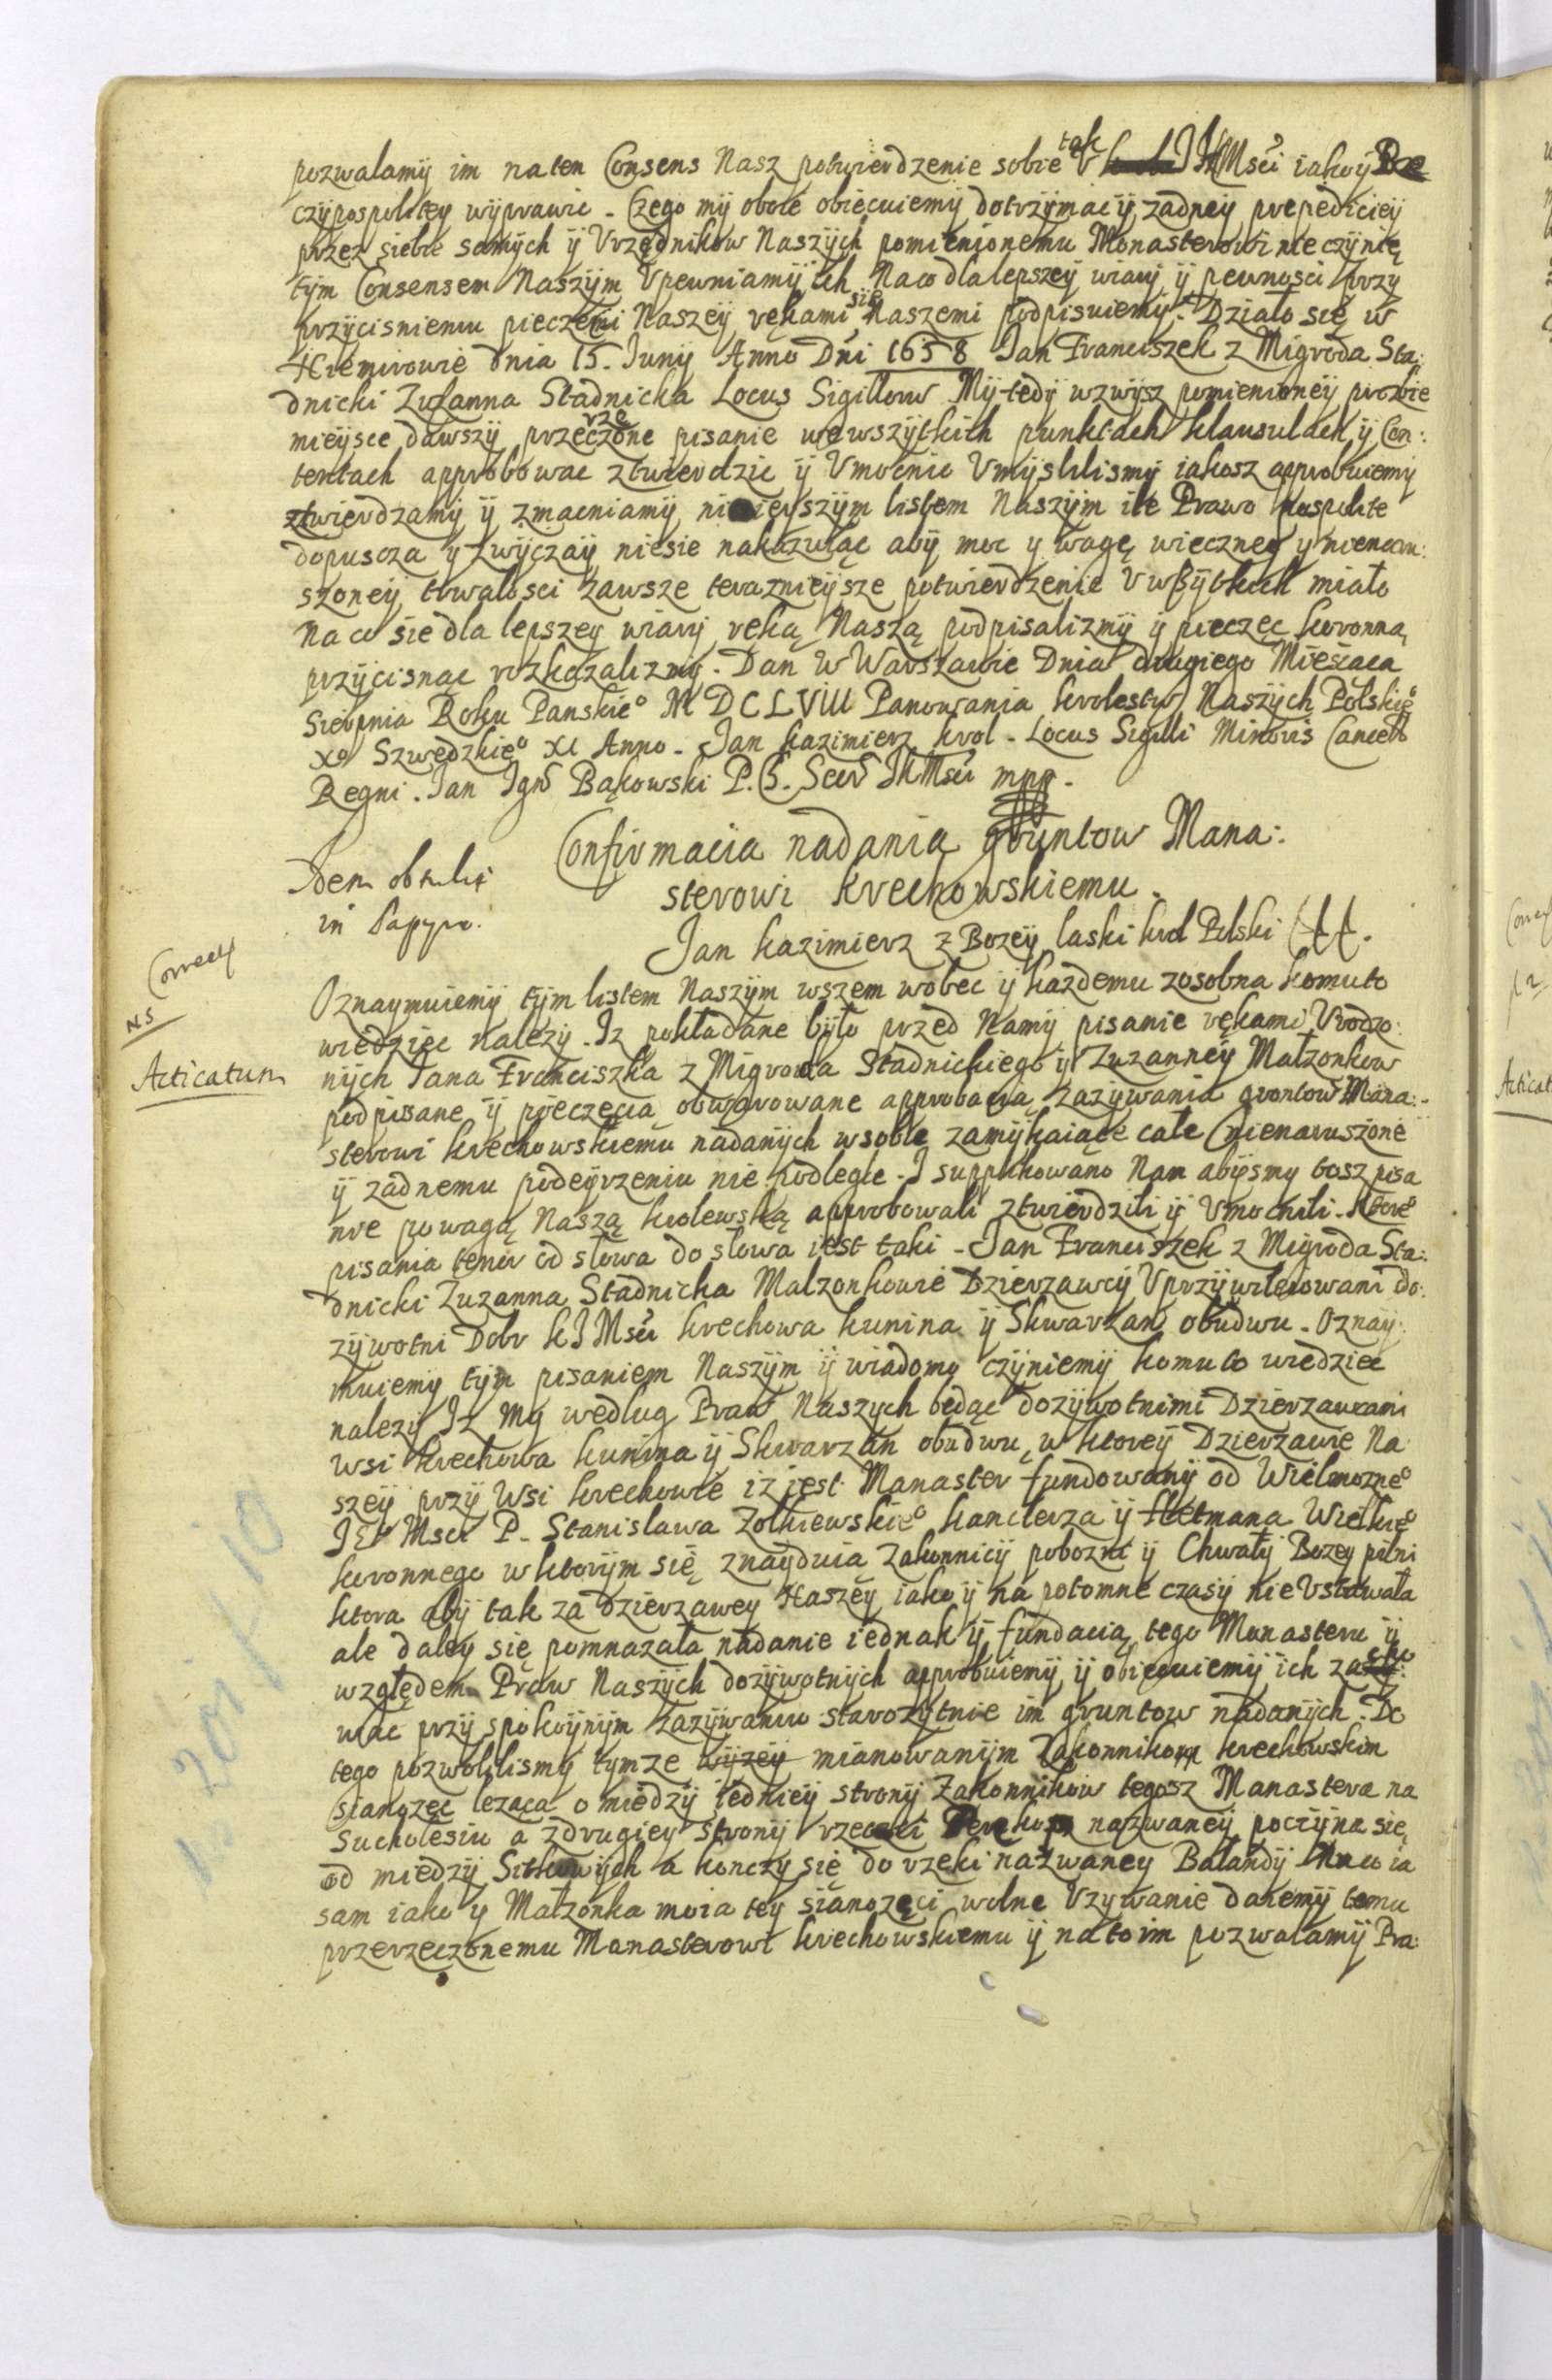 pozwalamÿ im na ten Consens Nasz potwierdzenie sobie tak V JKMsći iako ÿ Rze
czÿpospolitey wÿprawic. Czego mÿ oboie obiecuiemÿ dotrzÿmac ÿ zadney prepediciey
przez siebie samÿch ÿ Vrzędnikow Naszÿch pomienionemu Monasterowi nie czÿnic
tÿm Consensem Naszÿm Vpewniamÿ ich Na co dla lepszey wiary ÿ pewnosci przy
przÿcisnieniu pieczęci Naszeÿ rękami się Naszemi podpisuiemÿ. Działo się w
Hremirowie dnia 15. Junÿ Anno Dni 1658 Jan Franciszek z Migroda Sta:
dnicki Zuzanna Stadnicka Locus Sigillorum Mÿ tedÿ wzwÿsz pomienioneÿ prozbie
mieysce dawszÿ przerzeczone pisanie we wszÿtkich punktach klausulach ÿ Con:
tentach approbowac ztwierdzic ÿ Vmocnic Vmÿslilismÿ iakosz approbuiemÿ
ztwierdzamÿ ÿ zmacniamÿ ninieyszÿm listem Naszÿm ile Prawo pospolite
dopuscza y zwÿczaÿ niesie nakazuiąc abÿ moc y wagę wieczney y nienaru:
szoneÿ trwałosci zawsze teraznieÿsze potwierdzenie V wßÿtkich miało
Na co się dla lepszey wiarÿ ręką Naszą podpisalizmÿ ÿ pieczęc koronną
przÿcisnąc rozkazalizmÿ. Dan W Warszawie Dnia drugiego Miesiąca
Sierpnia Roku Panskie° MDCLVIII Panowania krolestw Naszÿch Polskie°
X° Szwedzkie° XI Anno. Jan kazimierz krol. Locus Sigilli Minoris Cancell
Regni. Jan Ign Bąkowski P. C. Secr JKMsći mpp.
Confirmacia nadania gruntow Mana:
sterowi krechowskiemu.
Idem obtulit
in Papyro.
Jan kazimierz z Bozeÿ łaski krol Polski
Correct
NS
Acticatum
Oznaymuiemÿ tÿm listem Naszÿm wszem wobec ÿ kazdemu zosobna komu to
wiedziec nalezy. Iz pokładane bÿło przed Namÿ pisanie rękami Vrodzo:
nÿch Jana Franciszka z Migroda Stadnickiego ÿ Zuzanneÿ Małzonkow
podpisane ÿ pieczęcią obwarowane approbacią zazÿwania grontow Mana:
sterowi krechowskiemu nadanÿch w sobie zamÿkaiące całe nienaruszone
ÿ zadnemu podeyrzeniu nie podległe. I supplikowano Nam abÿsmy tosz pisa
nie powagą Naszą krolewską approbowali ztwierdzili ÿ Vmocnili. Ktore°
pisania tenor od słowa do słowa iest taki. Jan Franciszek z Migroda Sta:
dnicki Zuzanna Stadnicka Malzonkowie Dzierzawcÿ Vprzÿwileiowani do:
zÿwotni Dobr kJMsći krechowa kunina ÿ Skwarzan obudwu. Oznaÿ:
muiemy tÿm pisaniem Naszÿm ÿ wiadomo czÿniemÿ komu to wiedziec
nalezÿ Iz Mÿ według Praw Naszych będąc dozÿwotnimi Dzierzawcami
wsi krechowa kunina ÿ Skwarzan obudwu, w ktoreÿ Dzierzawie Na
szeÿ przÿ Wsi krechowie iz jest Manaster fundowanÿ od Wielmozne°
JE° Msci P. Stanisława Zołkiewskie° kanclerza ÿ Hetmana Wielkie°
koronnego w ktorÿm się znayduią Zakonnicÿ pobozni ÿ Chwałÿ Bozey pilni
ktora abÿ tak za dzierzawey Naszeÿ iako ÿ na potomne czasÿ nie Vstawała
ale daley się pomnazała nadanie iednak ÿ fundacią tego Manasteru ÿ
względem Praw Naszÿch dozÿwotnÿch approbuiemÿ ÿ obiecuiemÿ ich zacho:
wac przÿ spokoÿnÿm zazÿwaniu starozÿtnie im gruntow nadanÿch. Do
tego pozwolilismÿ tymze wÿzeÿ mianowanÿm Zakonnikom krechowskim
sianozęc lezącą o miedzÿ iedniey stronÿ Zakonnikow tegosz Manastera na
Sucholesiu a zdrugiey stronÿ rzeczki nazwaneÿ poczÿna się
od miedzÿ Sitkowÿch a konczy się do rzeki nazwaney Balandÿ Na co ia
sam iako y Małzonka moia tey sianozęci wolne Vzywanie daiemÿ temu
przerzeczonemu Manasterowi krechowskiemu ÿ na to im pozwalamÿ Pra: